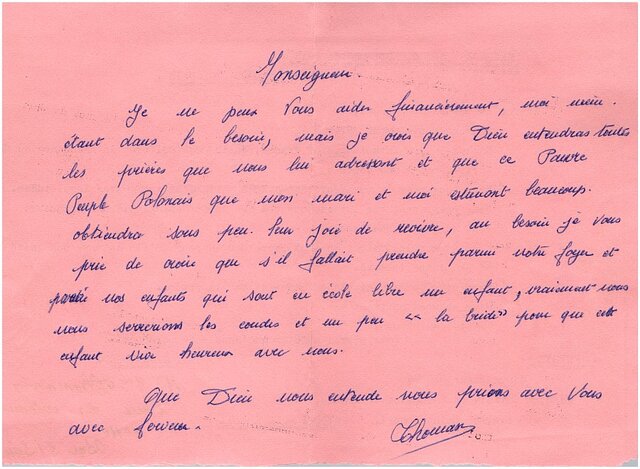 Monseigneur.
Je ne peux Vous aider financièrement, moi même.
étant dans le besoin, mais je crois que Dieu entendras toutes
les prières que nous lui adressont et que ce Pauvre
Peuple Polonais que mon mari et moi estimont beaucoup.
obtiendra sous peu. leur joie de revivre, au besoin je vous
prie de croire que s'il fallait prendre parmi notre foyer et
parmi nos enfants qui sont en école libre un enfant, vraiment nous
nous serrerions les coudes et un peu "la bride" pour que cet
enfant vive heureux avec nous.
Que Dieu nous entende nous prions avec Vous
avec ferveur.
Thomas